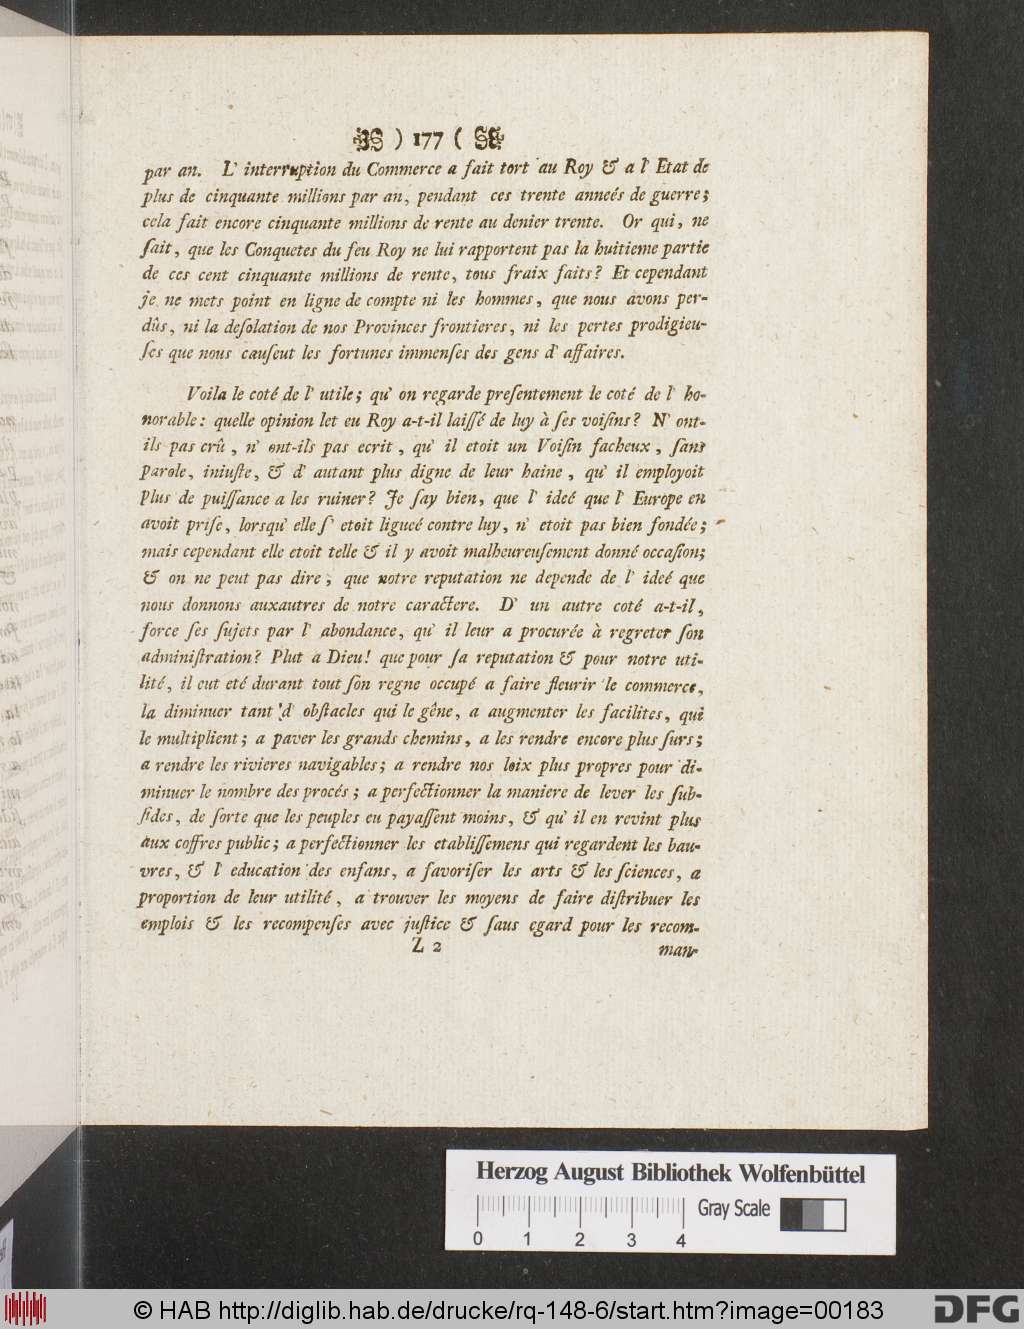 ) 177 (
par an. L' interruption du Commerce a fait tort au Roy & a l' Etat de
plus de cinquante millions par an, pendant ces trente anneés de guerre;
cela fait encore cinquante millions de rente au denier trente. Or qui, ne
ſait, que les Conquetes du feu Roy ne lui rapportent pas la huitieme partie
de ces cent cinquante millions de rente, tous fraix faits? Et cependant
je ne mets point en ligne de compte ni les hommes, que nous avons per-
dûs, ni la deſolation de nos Provinces frontieres, ni les pertes prodigieu-
ſes que nous cauſeut les fortunes immenſes des gens d' affaires.
Voila le coté de l' utile; qu' on regarde preſentement le coté de l' ho-
norable: quelle opinion let eu Roy a-t-il laiſſé de luy à ſes voiſins? N' ont-
ils pas crû, n' ont-ils pas ecrit, qu' il etoit un Voiſin facheux, ſans
parole, iniuſte, & d' autant plus digne de leur haine, qu' il employoit
plus de puiſſance a les ruiner? Je ſay bien, que l' ideé que l' Europe en
avoit priſe, lorsqu' elle ſ' etoit ligueé contre luy, n' etoit pas bien fondée;
mais cependant elle etoit telle & il y avoit malheureuſement donné occaſion;
& on ne peut pas dire, que notre reputation ne depende de l' ideé que
nous donnons auxautres de notre caractere. D' un autre coté a-t-il,
force ſes ſujets par l' abondance, qu' il leur a procurée à regreter ſon
adminiſtration? Plut a Dieu! que pour ſa reputation & pour notre uti-
lité, il eut eté durant tout ſon regne occupé a faire fleurir le commerce,
la diminuer tant d' obſtacles qui le gêne, a augmenter les facilites, qui
le multiplient; a paver les grands chemins, a les rendre encore plus ſurs;
a rendre les rivieres navigables; a rendre nos loix plus propres pour di-
minuer le nombre des procés; a perfectionner la maniere de lever les ſub-
ſides, de ſorte que les peuples eu payaſſent moins, & qu' il en revint plus
aux coffres public; a perfectionner les etabliſſemens qui regardent les bau-
vres, & l' education des enfans, a favoriſer les arts & les ſciences, a
proportion de leur utilité, a trouver les moyens de faire diſtribuer les
emplois & les recompenſes avec juſtice & ſaus egard pour les recom-
Z 2 man-
Herzog August Bibliothek Wolfenbüttel
Gray Scale
0 1 2 3 4
© HAB http://diglib.hab.de/drucke/rq-148-6/start.htm?image=00183
DFG